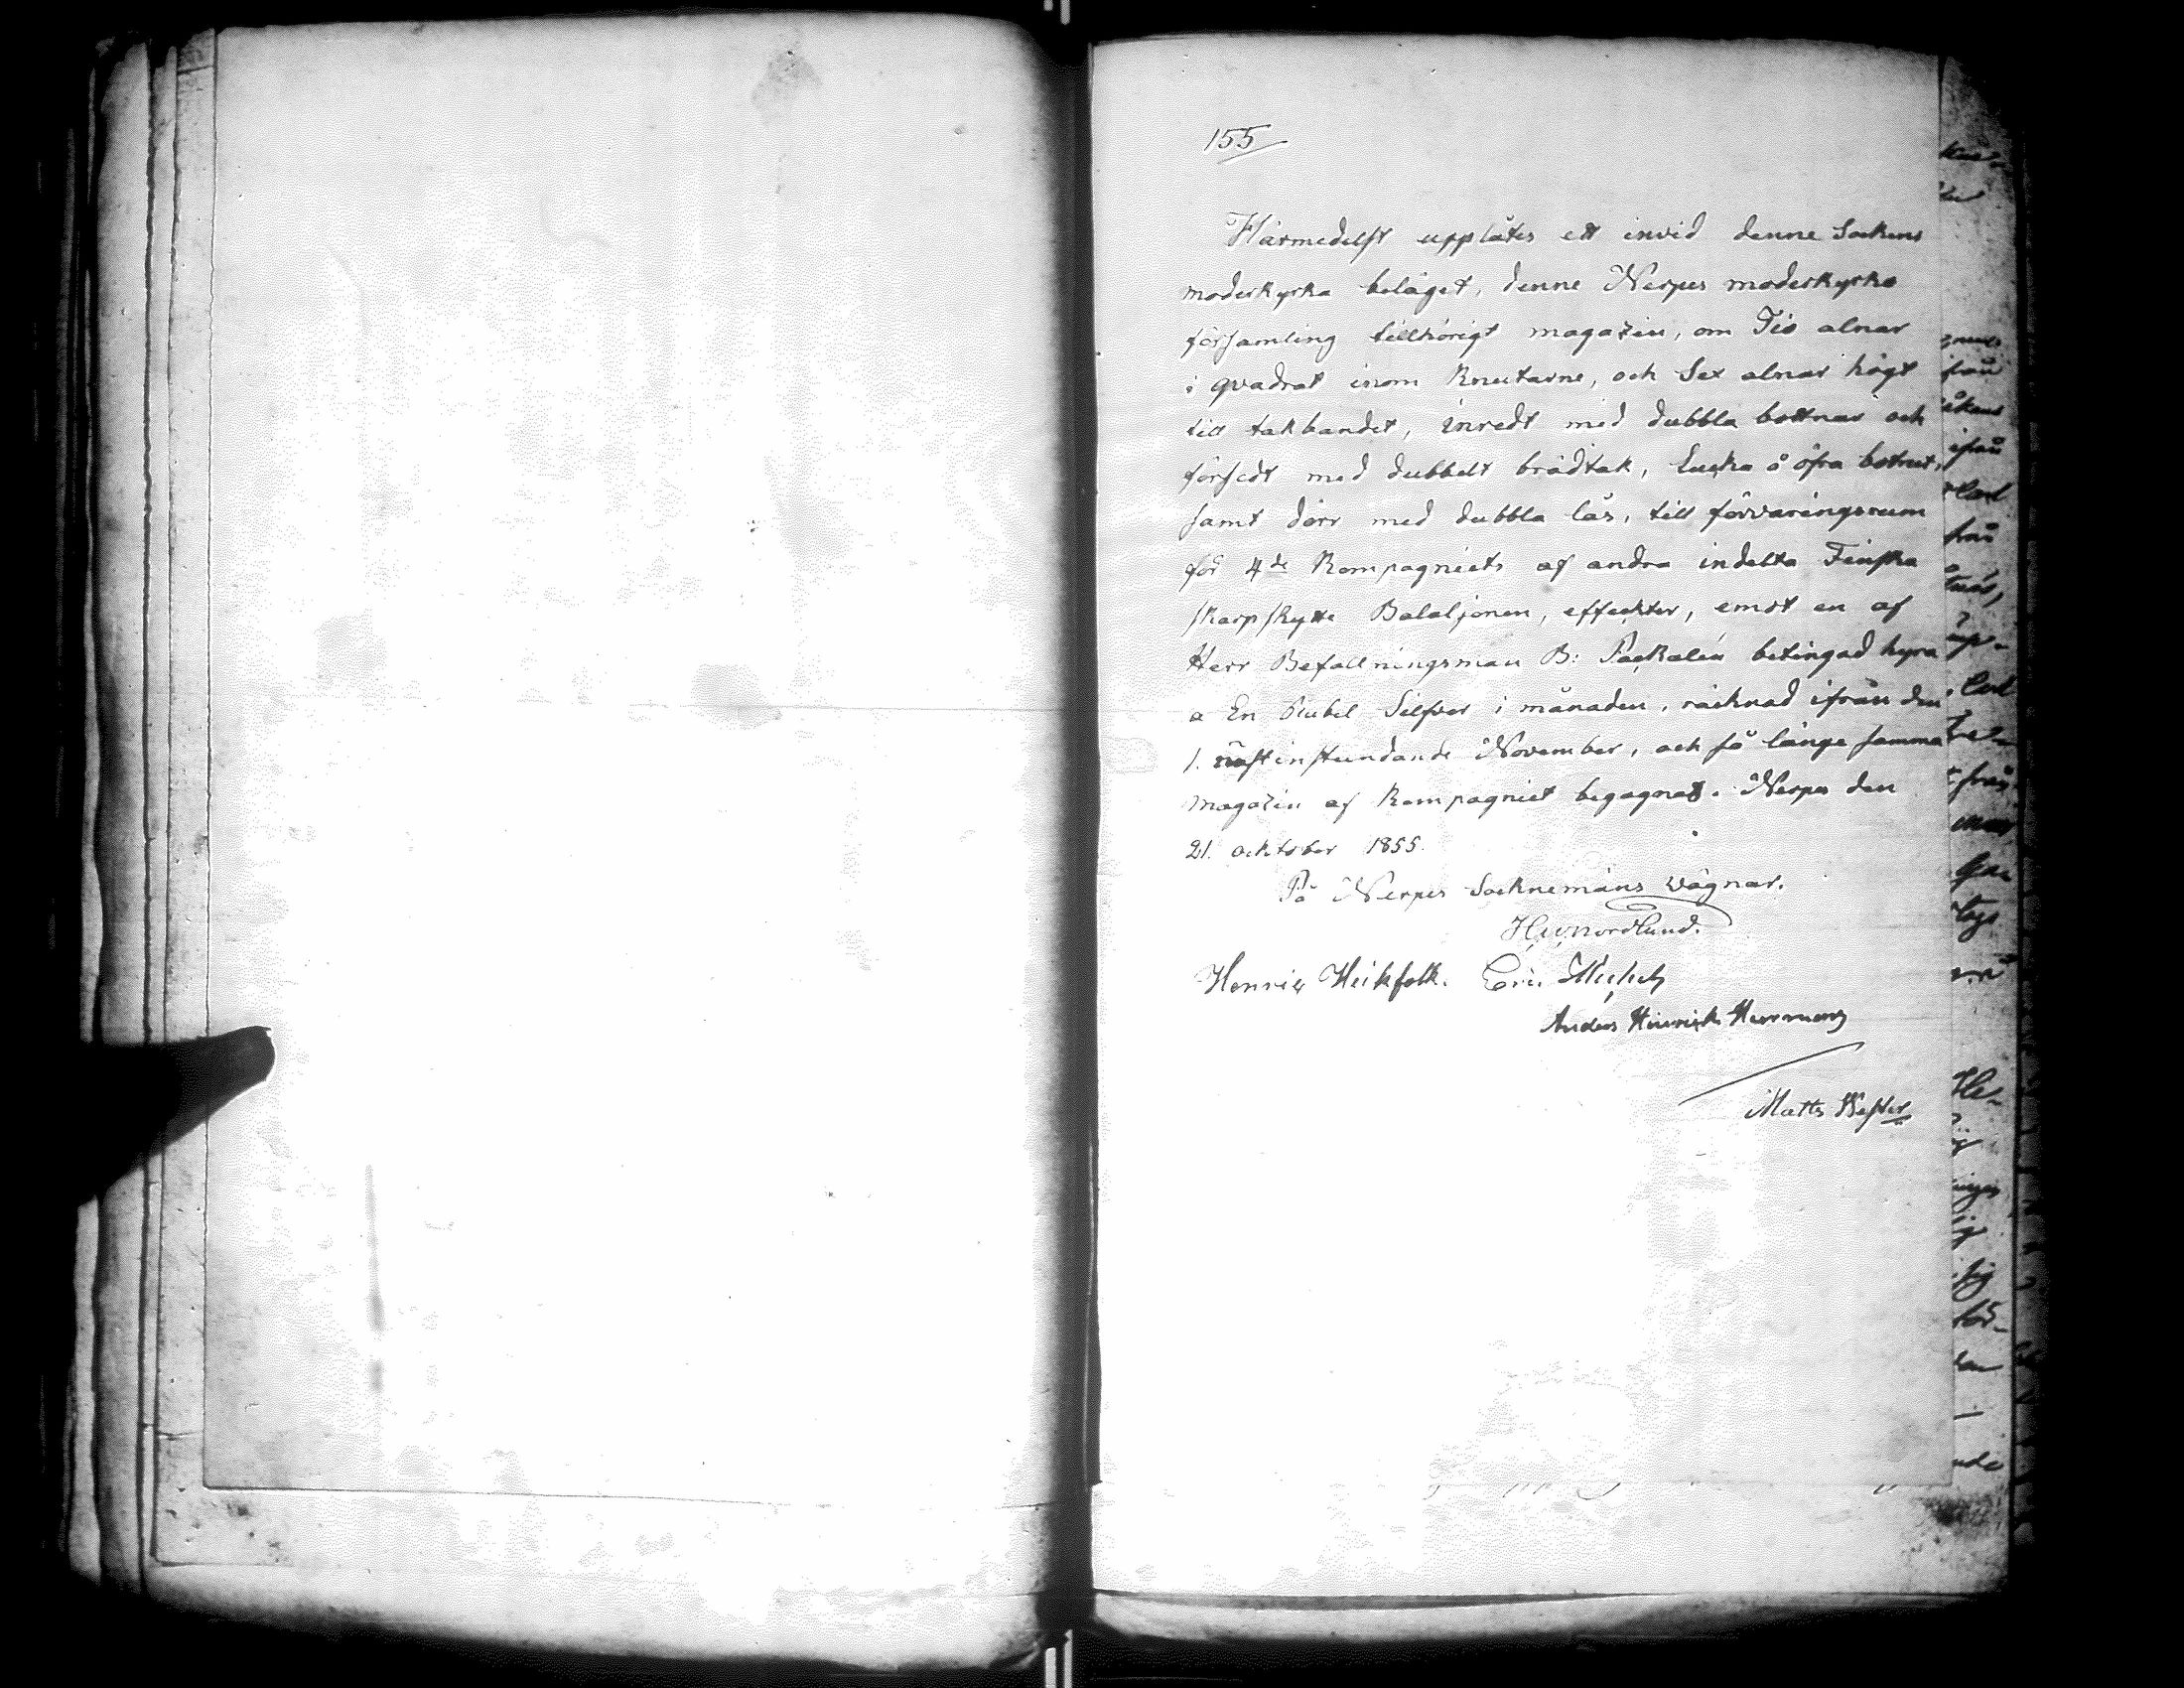 155
Härmedelst upplåtes ett invid denne Sockens
moderkyrka beläget, denne Nerpes moderkyrko
församling tillhörigt magazin, om Tio alnar
i qvadrat inom knutarne, och Sex alnar högt
till takbandet, inredt med dubbla bottnar och
försedt med dubbelt brädtak, Lucka å öfra bottnet,
samt dörr med dubbla lås, till förvaringsrum
för 4de Kompagniets af andra indelta Finska
skarpskytte Bataljonen, effeckter, emot en af
Herr Befallningsman B: Packalén betingad hyra
a En Rubel Silfver i månaden, räcknad ifrån den
1. nästinstundande November, och så länge samma
magazin af Kompagniet begagnas. Nerpes den
21. ocktober 1855.
På Nerpes Socknemäns vägnar.
Nordlund.
Henric Heikfolk. Eric
Anders Hinrich Herrmans
Matts Wester